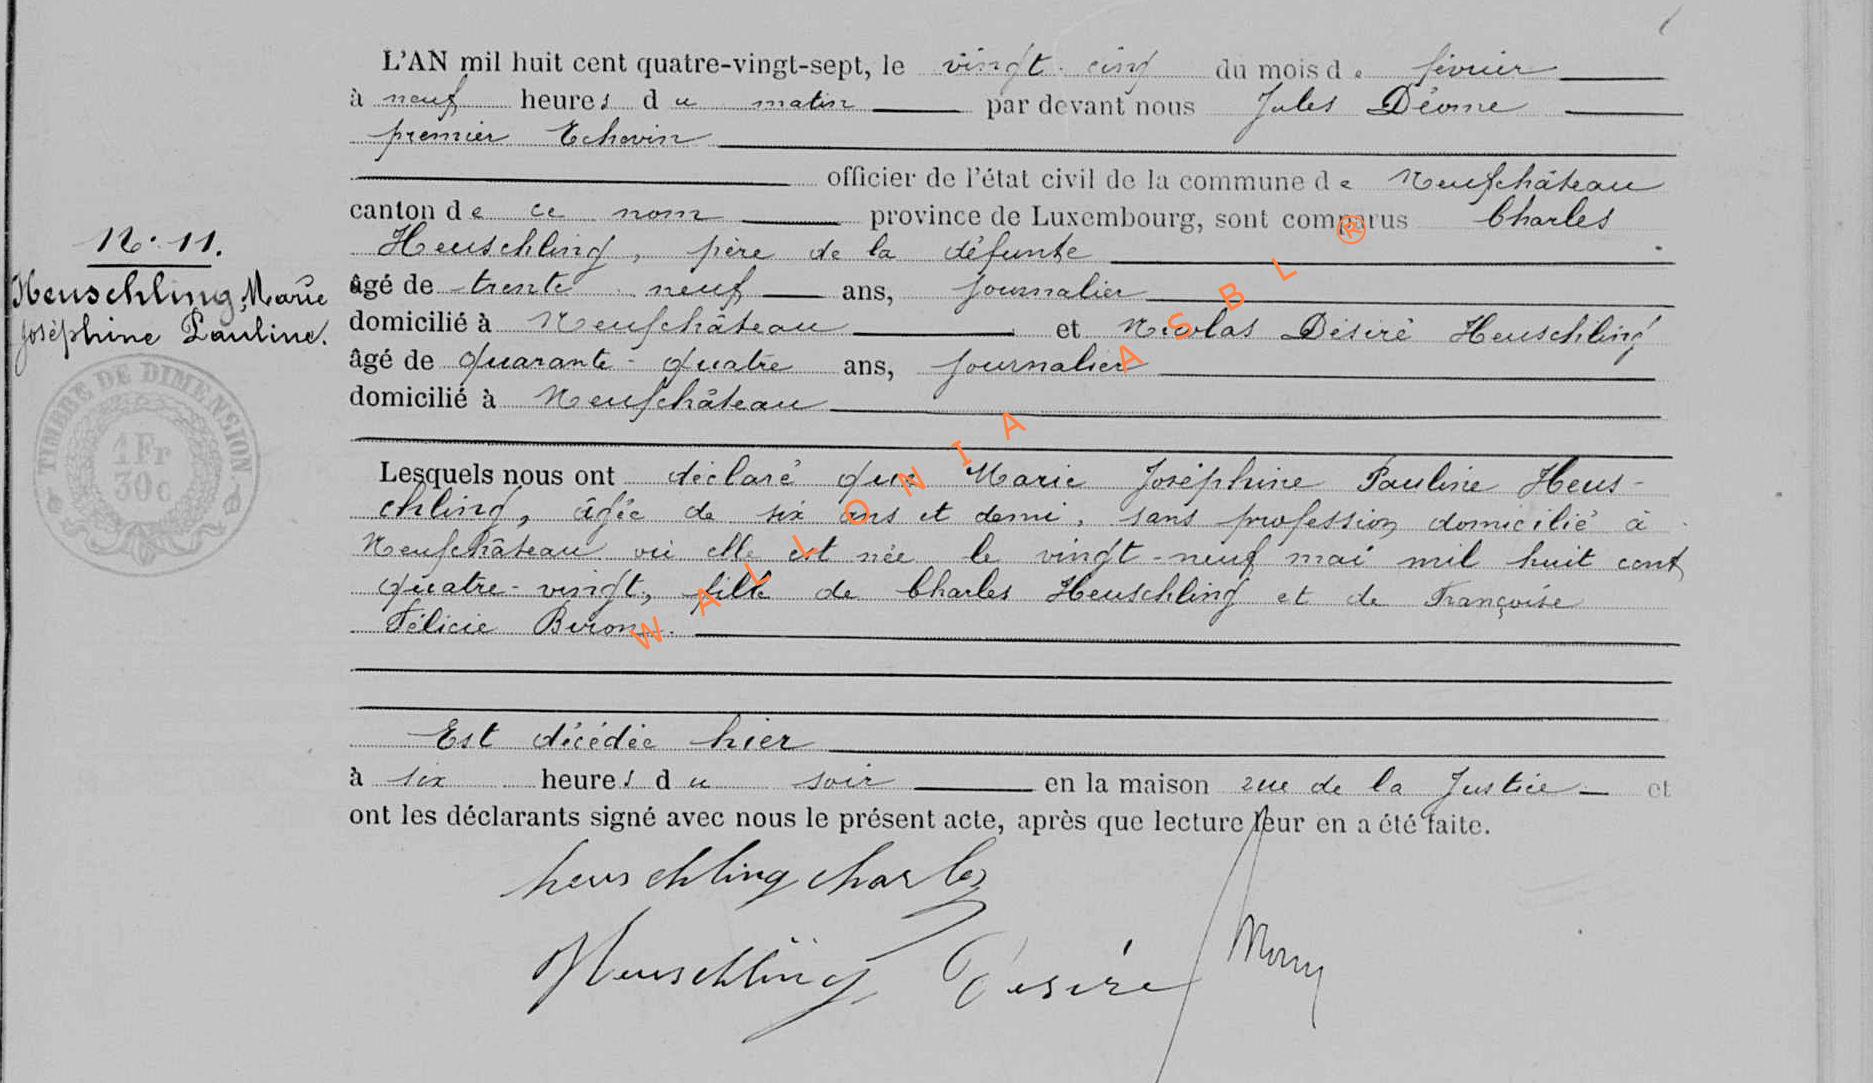 L'AN mil huit cent quatre-vingt-sept, le vingt-cinq du mois de février
à neuf heures du matin par devant nous Jules Déome
premier Echevin
officier de l'état civil de la commune de Neufchâteau
canton de ce nom province de Luxembourg, sont comparus Charles
N. 11.
Heuschling, père de la défunte
Heuschling, Marie
Joséphine Pauline.
âgé de trente neuf ans, journalier
domicilié à Neufchâteau et Nicolas Désiré Heuschling
âgé de quarante-quatre ans, journalier
domicilié à Neufchâteau
TIMBRE DE DIMENSION
1 Fr
30c
Lesquels nous ont déclaré que Marie Joséphine Pauline Heus-
chling, âgée de six ans et demi, sans profession, domicilié à
Neufchâteau où elle est née le vingt-neuf mai mil huit cent
quatre-vingt, fille de Charles Heuschling et de Françoise
Félicie Biron.
Est décédée hier
à six heures du soir en la maison rue de la Justice et
ont les déclarants signé avec nous le présent acte, après que lecture leur en a été faite.
heuschling charles
Heuschling Désiré
WALLONIA ASBL ®